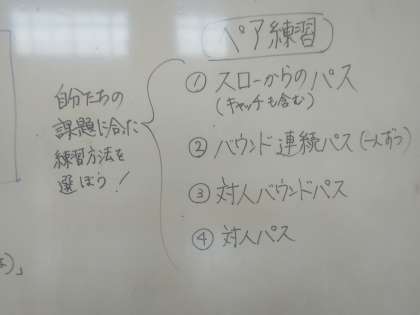 ペア練習
自分たちの
課題に合った
練習方法を
選ぼう!
① スローからのパス
(キャッチも含む)
② バウンド連続パス(一人ずつ)
③ 対人バウンドパス
④ 対人パス
)」